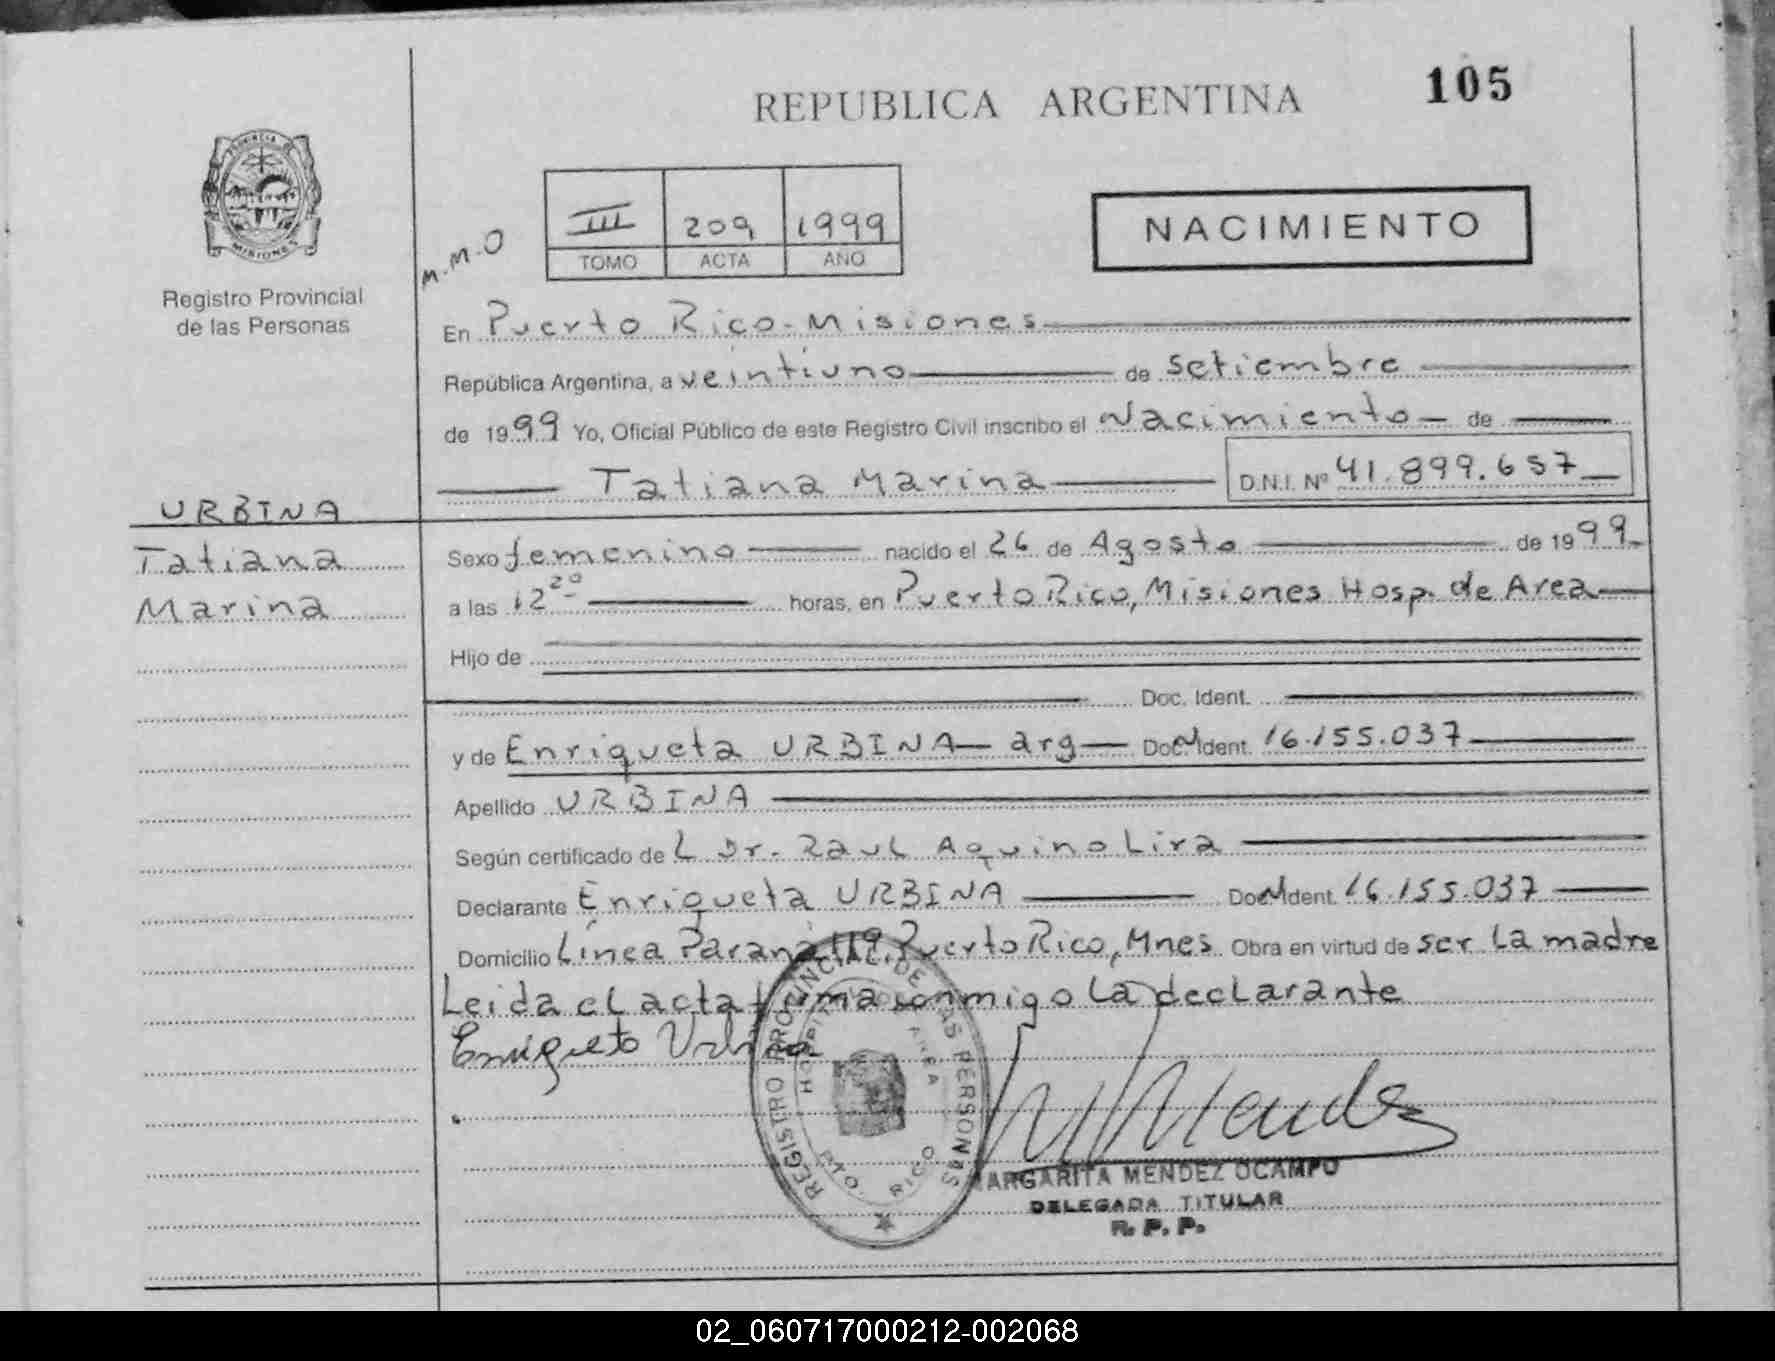 REPUBLICA ARGENTINA
105
PROVINCIA DE
MISIONES
Registro Provincial
de las Personas
M.M.O
III 209 1999
TOMO ACTA AÑO
NACIMIENTO
En Puerto Rico - Misiones
República Argentina, a veintiuno de setiembre
de 1999 Yo, Oficial Público de este Registro Civil inscribo el Nacimiento de
Tatiana Marina D.N.I. Nº 41.899.657
URBINA
Tatiana
Marina
Sexo femenino nacido el 26 de Agosto de 1999
a las 12 20 horas, en Puerto Rico, Misiones Hosp. de Area
Hijo de
Doc. Ident.
y de Enriqueta URBINA - arg - Doc. Ident. 16.155.037
Apellido URBINA
Según certificado de L Dr. Raul Aquino Lira
Declarante Enriqueta URBINA Doc. Ident. 16.155.037
Domicilio Línea Paraná 119, Puerto Rico, Mnes. Obra en virtud de ser la madre
Leida el acta firma conmigo la declarante
Enriqueta Urbina
REGISTRO PROVINCIAL DE LAS PERSONAS
HOSPITAL AREA
PTO. RICO
M Mendez
MARGARITA MENDEZ OCAMPO
DELEGADA TITULAR
R. P. P.
02_060717000212-002068